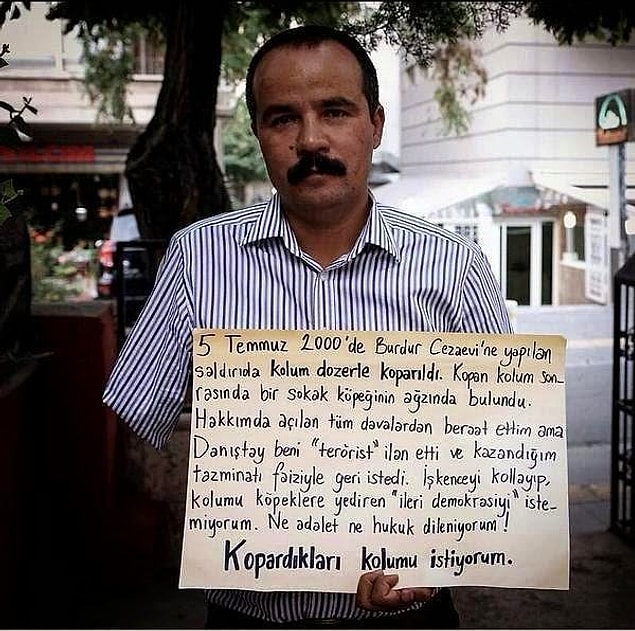 5 Temmuz 2000'de Burdur Cezaevi'ne yapılan
saldırıda kolum dozerle koparıldı. Kopan kolum son-
rasında bir sokak köpeğinin ağzında bulundu.
Hakkımda açılan tüm davalardan beraat ettim ama
Danıştay beni "terörist" ilan etti ve kazandığım
tazminatı faiziyle geri istedi. İşkenceyi kollayıp,
kolumu köpeklere yediren "ileri demokrasiyi" iste-
miyorum. Ne adalet ne hukuk dileniyorum!
Kopardıkları kolumu istiyorum.